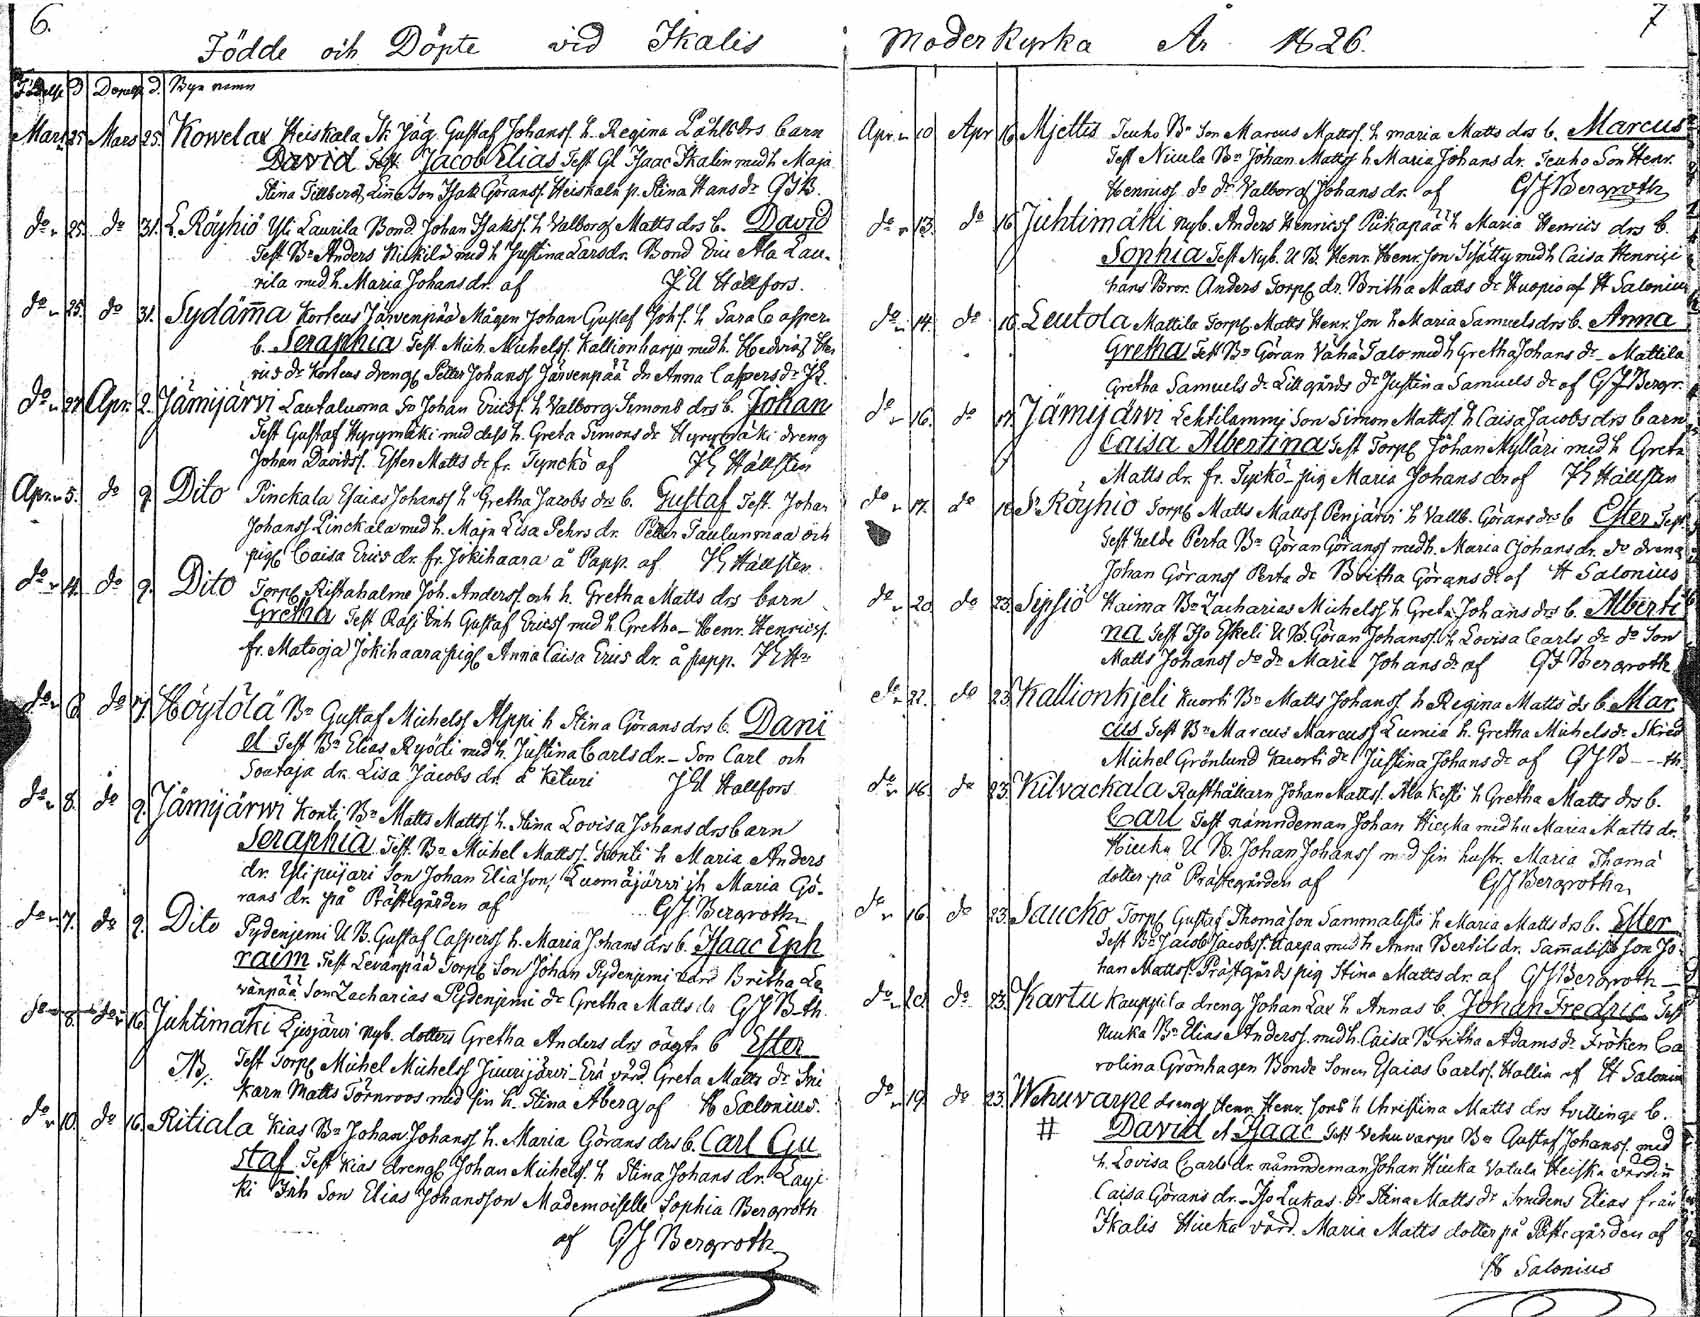 6.
Födde och Döpte vid Ikalis
Födelse D Dopels d. Bya namn
Mars 25 Mars 25. Kowelax Heiskala St. Jäg. Gustaf Johanss. h. Regina Påhlsdrs barn
David Test. Jacob Elias Test Gl Isaac Ikalin med h Maja
Stina Tillberg, Son Isak Göranss. Heiskala p. Stina Hans dr GJB.
do 25. do 31. L. Röyhiö Yli Laurila Bond. Johan Isakss. h Valborg Matts drs b. David
Test. Bn Anders Nickilä med h Justina Larsdr. Bond Ala Lau-
rila med h. Maria Johans dr. af J U Hällfors.
do 25. do 31. Sydämma Korteus Järvenpää Mågen Johan Gustaf Joh s. h Sara Caspers
b. Seraphia Test. Mich. Michelss. Kallionharja med h. Hedvig Hen
rics dr Korteus dreng Petter Johanss Järvenpää dr Anna Caspers dr
do 27 Apr. 2. Jämijärvi Lautaluoma Sn Johan Ericss. h Valborg Simons drs b. Johan
Test Gustaf Hyrymäki med dess h. Greta Simons dr Hyrymäki dreng
Johan Davidss. Ester Matts dr fr. Tynckö af Hällsten
Apr. 5. do 9. Dito Pinckala Esaias Johanss h Gretha Jacobs drs b. Gustaf Test. Johan
Johanss Pinckala med h. Maja Lisa Pehrs dr. Petter Taulunmaa och
pig Caisa Erics dr. fr. Jokihaara å Papp. af Hällsten.
do 4. do 9. Dito Torp Ristahalme Joh. Anderss. och h. Gretha Matts drs barn
Gretha Test Rasi Inh Gustaf Ericss med h Gretha - Henr. Henricss.
fr. Matooja Jokihaara pig Anna Caisa Erics dr. å papp.
do 6. do 17. Höytölä Bn Gustaf Michelss Alppi h Stina Görans drs b. Dani
el Test Bn Elias Ryödi med h. Justina Carls dr. - Son Carl och
Soataja dr. Lisa Jacobs dr. å Kituri Hallfors
do 8. do 9. Jämijärwi Konti Bn Matts Mattss h. Stina Lovisa Johans drs barn
Seraphia Test. Bn Michel Mattss. Konti h Maria Anders
dr. Ylipyijari Son Johan Eliason, Luomajärwi Maria Gö-
rans dr. på Prästegården af GJ. Bergroth
do 7. do 9. Dito Pydenjemi U B. Gustaf Casperss h. Maria Johans drs b. Isaac Eph
raim Test Levänpää Torp Son Johan Pydenjemi vard Britha Le
vänpää Son Zacharias Pydenjemi dr Gretha Matts dr GJB-th.
do 8. do 16. Juhtimäki nyb. dotters Gretha Anders drs oägta b Ester
NB. Test Torp Michel Michelss Juurijärvi - Erä vård. Greta Matts dr Smi
karn Matts Törnroos med sin h. Stina Åberg af H Salonius.
do 10. do 16. Ritiala Kias Bn Johan Johanss h. Maria Görans drs b. Carl Gu
staf Test Kias dreng Johan Michelss. h Stina Johans dr. Layi
ki Inh Son Elias Johansson Mademoiselle Sophia Bergroth
af GJ Bergroth
7
Moderkyrka År 1826.
Apr. 10 Apr 16 Mjettis Teuho Bn Son Marcus Mattss. h maria Matts drs b. Marcus
Test Nicula Bn Johan Mattss h Maria Johans dr. Teuho Son Henr.
Henricss do dr Valborg Johans dr. af GJ Bergroth
do 13. do 16 Juhtimäki nyb. Anders Henricss Piikapää h Maria Henrics drs b.
Sophia Test Nyb. U B. Henr. Henr. Son med h Caisa Henrici
hans Bror. Anders Torp dr. Britha Matts dr Kuopio af H Salonius
do 14. do 16 Leutola Mattila Torp Matts Henr. Son h Maria Samuels drs b. Anna
Gretha Test Bn Göran Vähä Talo med h Gretha Johans dr - Mattila
Gretha Samuels dr Littgårds dr Justina Samuels dr af GJ Bergr.
do 16. do 17. Jämijärvi Lehtilammi Son Simon Mattss. h Caisa Jacobs drs barn
Caisa Albertina Test Torp Johan Myllari med h Greta
Matts dr. fr. Tyckö - pig Maria Johans dr af Hällsten
do 17. do 18 S. Röyhiö Torp Matts Mattss Penjärvi h Vallb. Görans drs b Ester Test
Test helde Perta Bn Göran Göranss med h. Maria Johans dr. do dreng
Johan Göranss Perta dr Britha Görans dr af H Salonius
do 20 do 23. Sipsiö Haima Bn Zacharias Michelss h Greta Johans drs b. Alberti
na Test Iso Eskeli U B. Göran Johanss h Lovisa Carls dr do Son
Matts Johanss do dr Maria Johans dr af GJ Bergroth
do 22. do 23. Kallionkjeli Kuorti Bn Matts Johanss h Regina Matts drs b. Mar
cus Test Bn Marcus Marcuss Lumia h. Gretha Michels dr Skräd
Michel Grönlund Kuorti dr Justina Johans dr af GJB--th
do 16. do 23. Kilvackala Rusthållarn Johan Mattss. Ala Kesti h Gretha Matts drs b.
Carl Test nämndeman Johan Hiucka med hu Maria Matts dr.
Hiucka U B. Johan Johanss med sin hustr. Maria Thoma
dotter på Prästegården af GJ Bergroth
do 16. do 23. Saucko Torp Gustaf Thomason Sammalisto h Maria Matts drs b. Ester
Test Bn Jacob Jacobss. Karpa med h Anna Bertils dr. Sammalisto Son Jo-
han Mattss. Prästgårds pig Stina Matts dr. af GJ Bergroth
do 20 do 23. Kartu Kauppila dreng Johan Lax h Annas b. Johan Fredric Test
Muka Bn Elias Anderss. med h. Caisa Britha Adams dr Fröken Ca
rolina Grönhagen Bonde Sonen Esaias Carlss. Hallin af H Salonius
do 19 do 23. Wehuvarpe dreng Henr. Henr. Sons h Christina Matts drs tvillinge b.
# David et Isaac Test Vehuvarpe Bn Gustaf Johanss. med
h. Lovisa Carls dr. nämndeman Johan Hiuka Vatula Heiska värdin
Caisa Görans dr. - Iso Lukas. dr Stina Matts dr Smidens Elias från
Ikalis Hiucka värd. Maria Matts dotter på Prästegården af
H Salonius